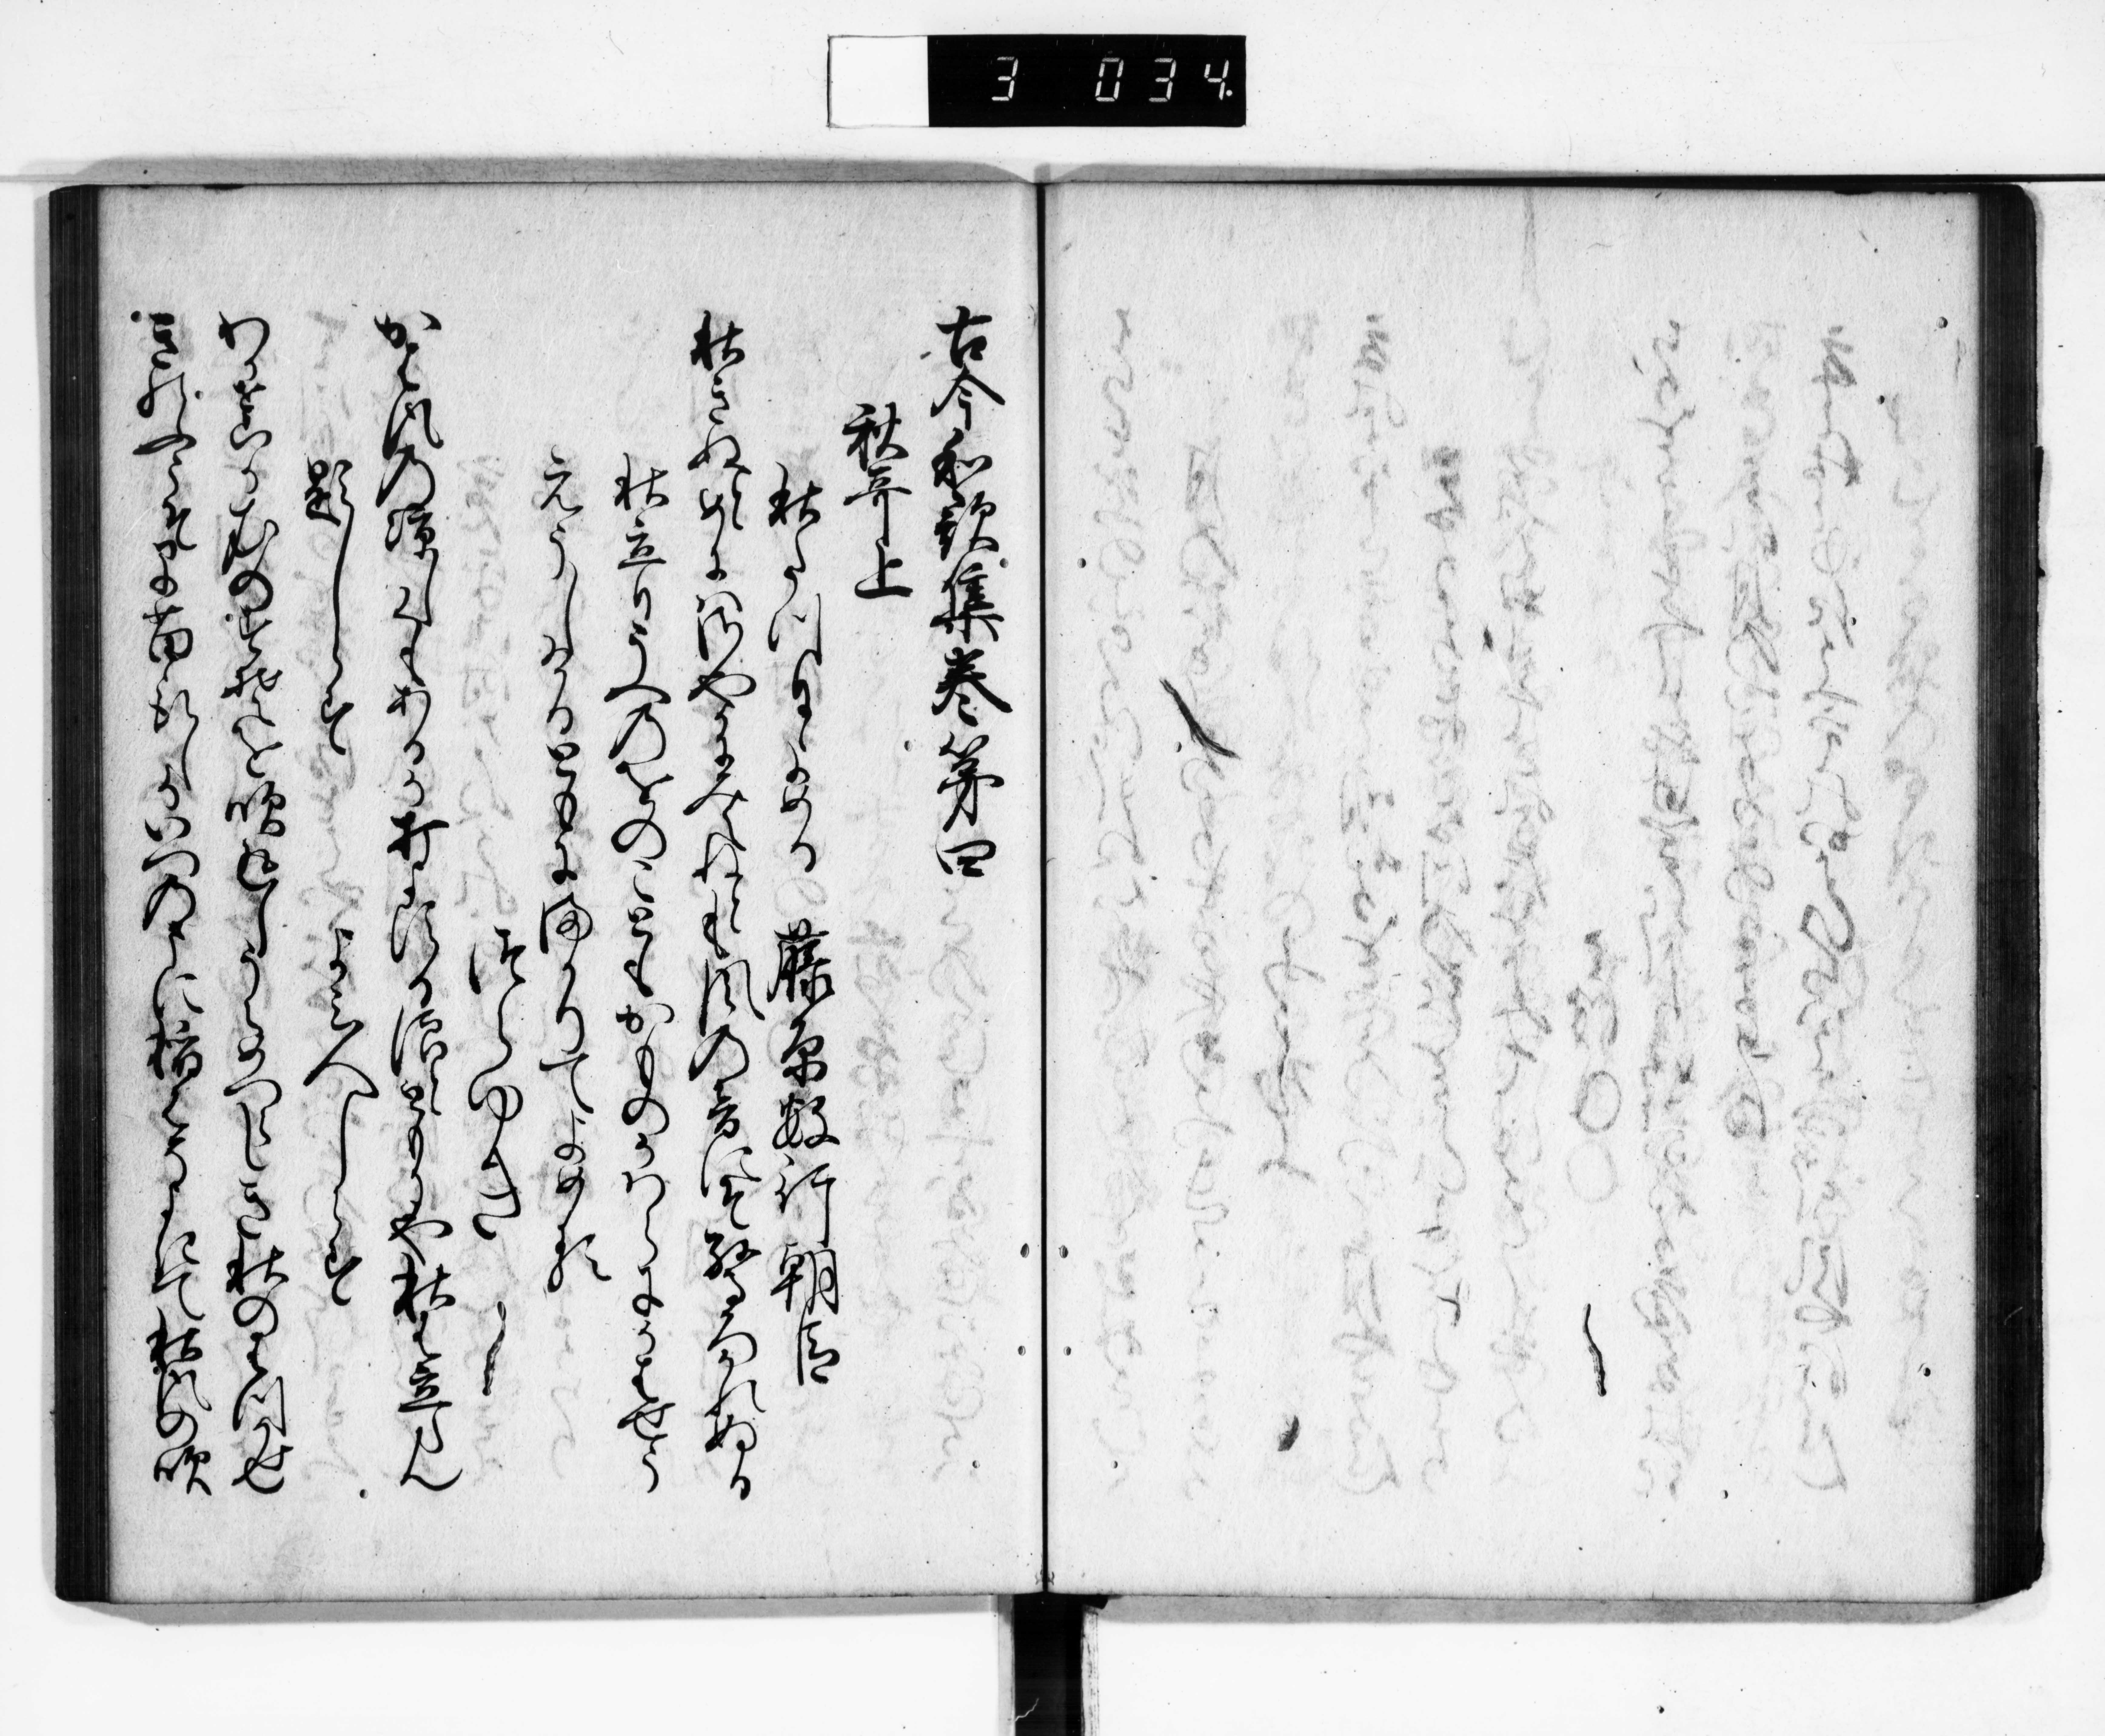 3 034
古今和歌集巻第四
秋哥上
秋たつ日よめる 藤原敏行朝臣
秋きぬとめにはさやかにみえねとも風の音にそ驚かれぬる
秋立日うへのをのこともかものかはらにかはせう
えうしけるともにまかりてよめる
つらゆき
かは風の涼しくもあるか打よする浪とともにや秋は立らん
題しらす よみ人しらす
わかせこか衣のすそを吹返しうらめつらしき秋のはつ風
きのふこそさ苗とりしかいつのまに稲葉そよきて秋風の吹